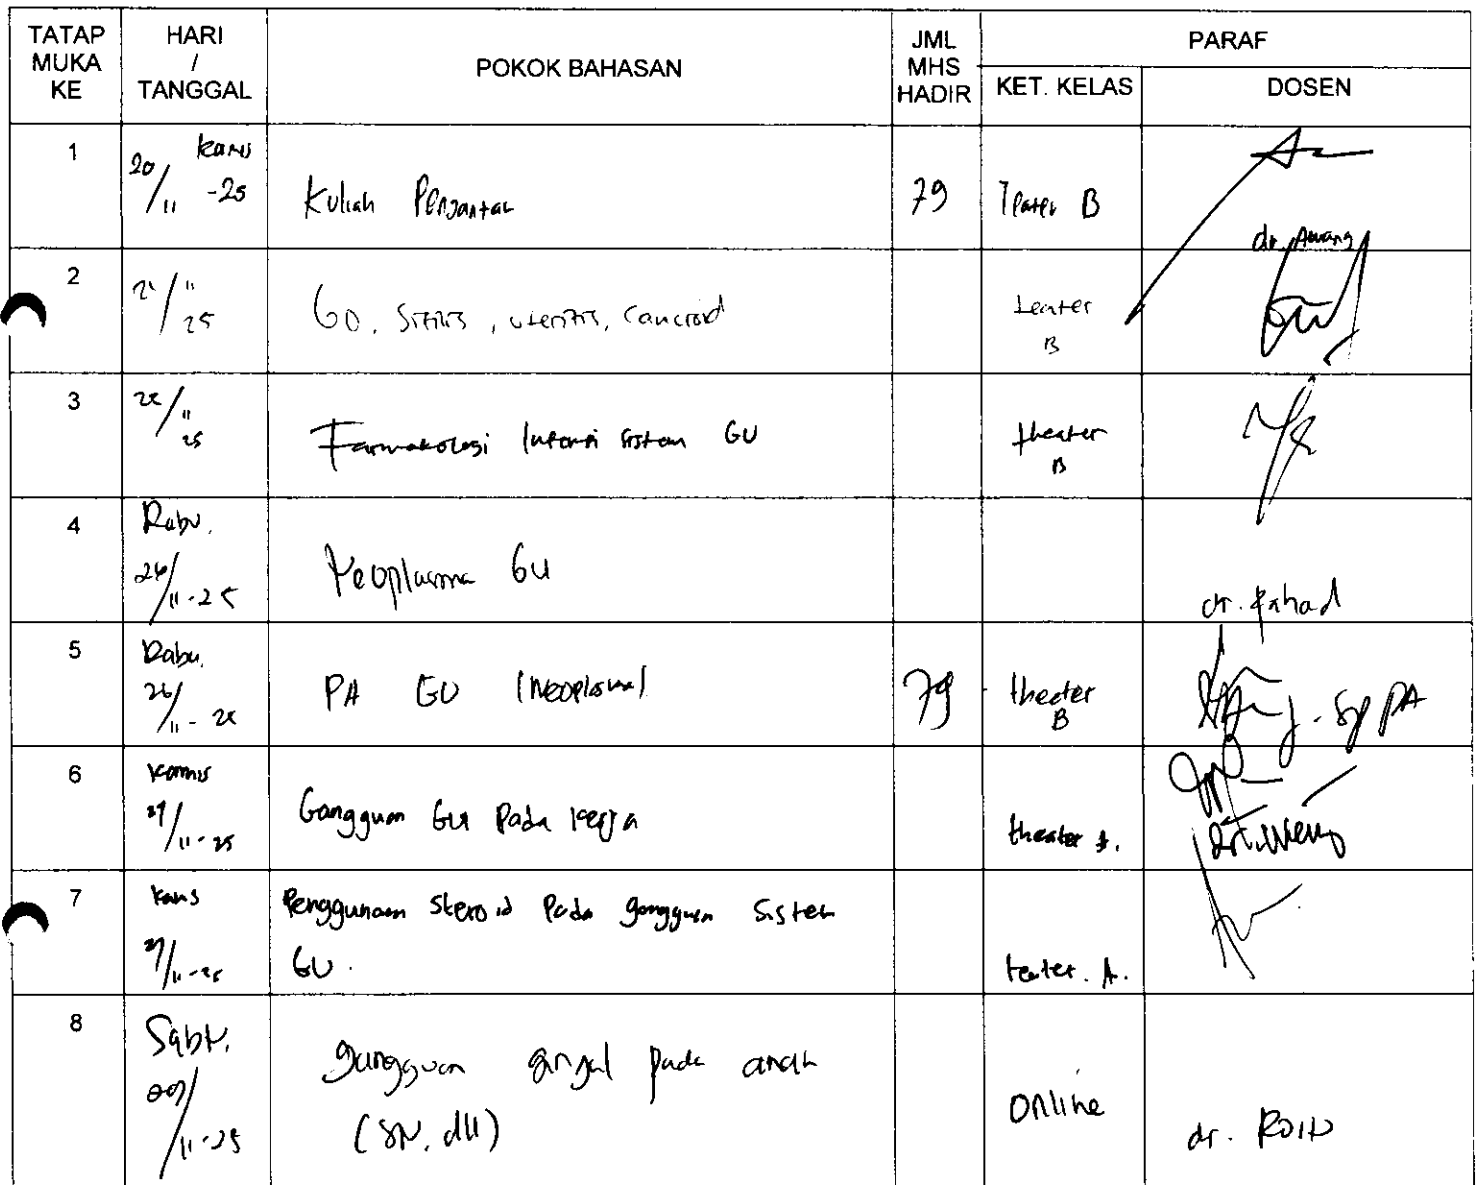 TATAP MUKA KE
HARI / TANGGAL
POKOK BAHASAN
JML MHS HADIR
PARAF
KET. KELAS
DOSEN
1
Kamis 20/11-25
Kuliah Pengantar
79
Teater B
dr. Awang
2
21/11 25
GO, Sifilis, uteritis, Cancroid
teater B
3
11 25
Farmakologi Sistem GU
theater B
4
Rabu, 26/11-25
Neoplasma GU
dr. Fahad
5
Rabu, 26/11-25
PA GU (Neoplasma)
79
theater B
Sp PA
6
Kamis 27/11-25
Gangguan GU Pada kerja
theater A.
7
Kamis 27/11-25
Penggunaan Steroid Pada gangguan Sistem
GU.
teater. A.
8
Sabtu, 11-25
gangguan ginjal pada anak
(SN, dll)
Online
dr.